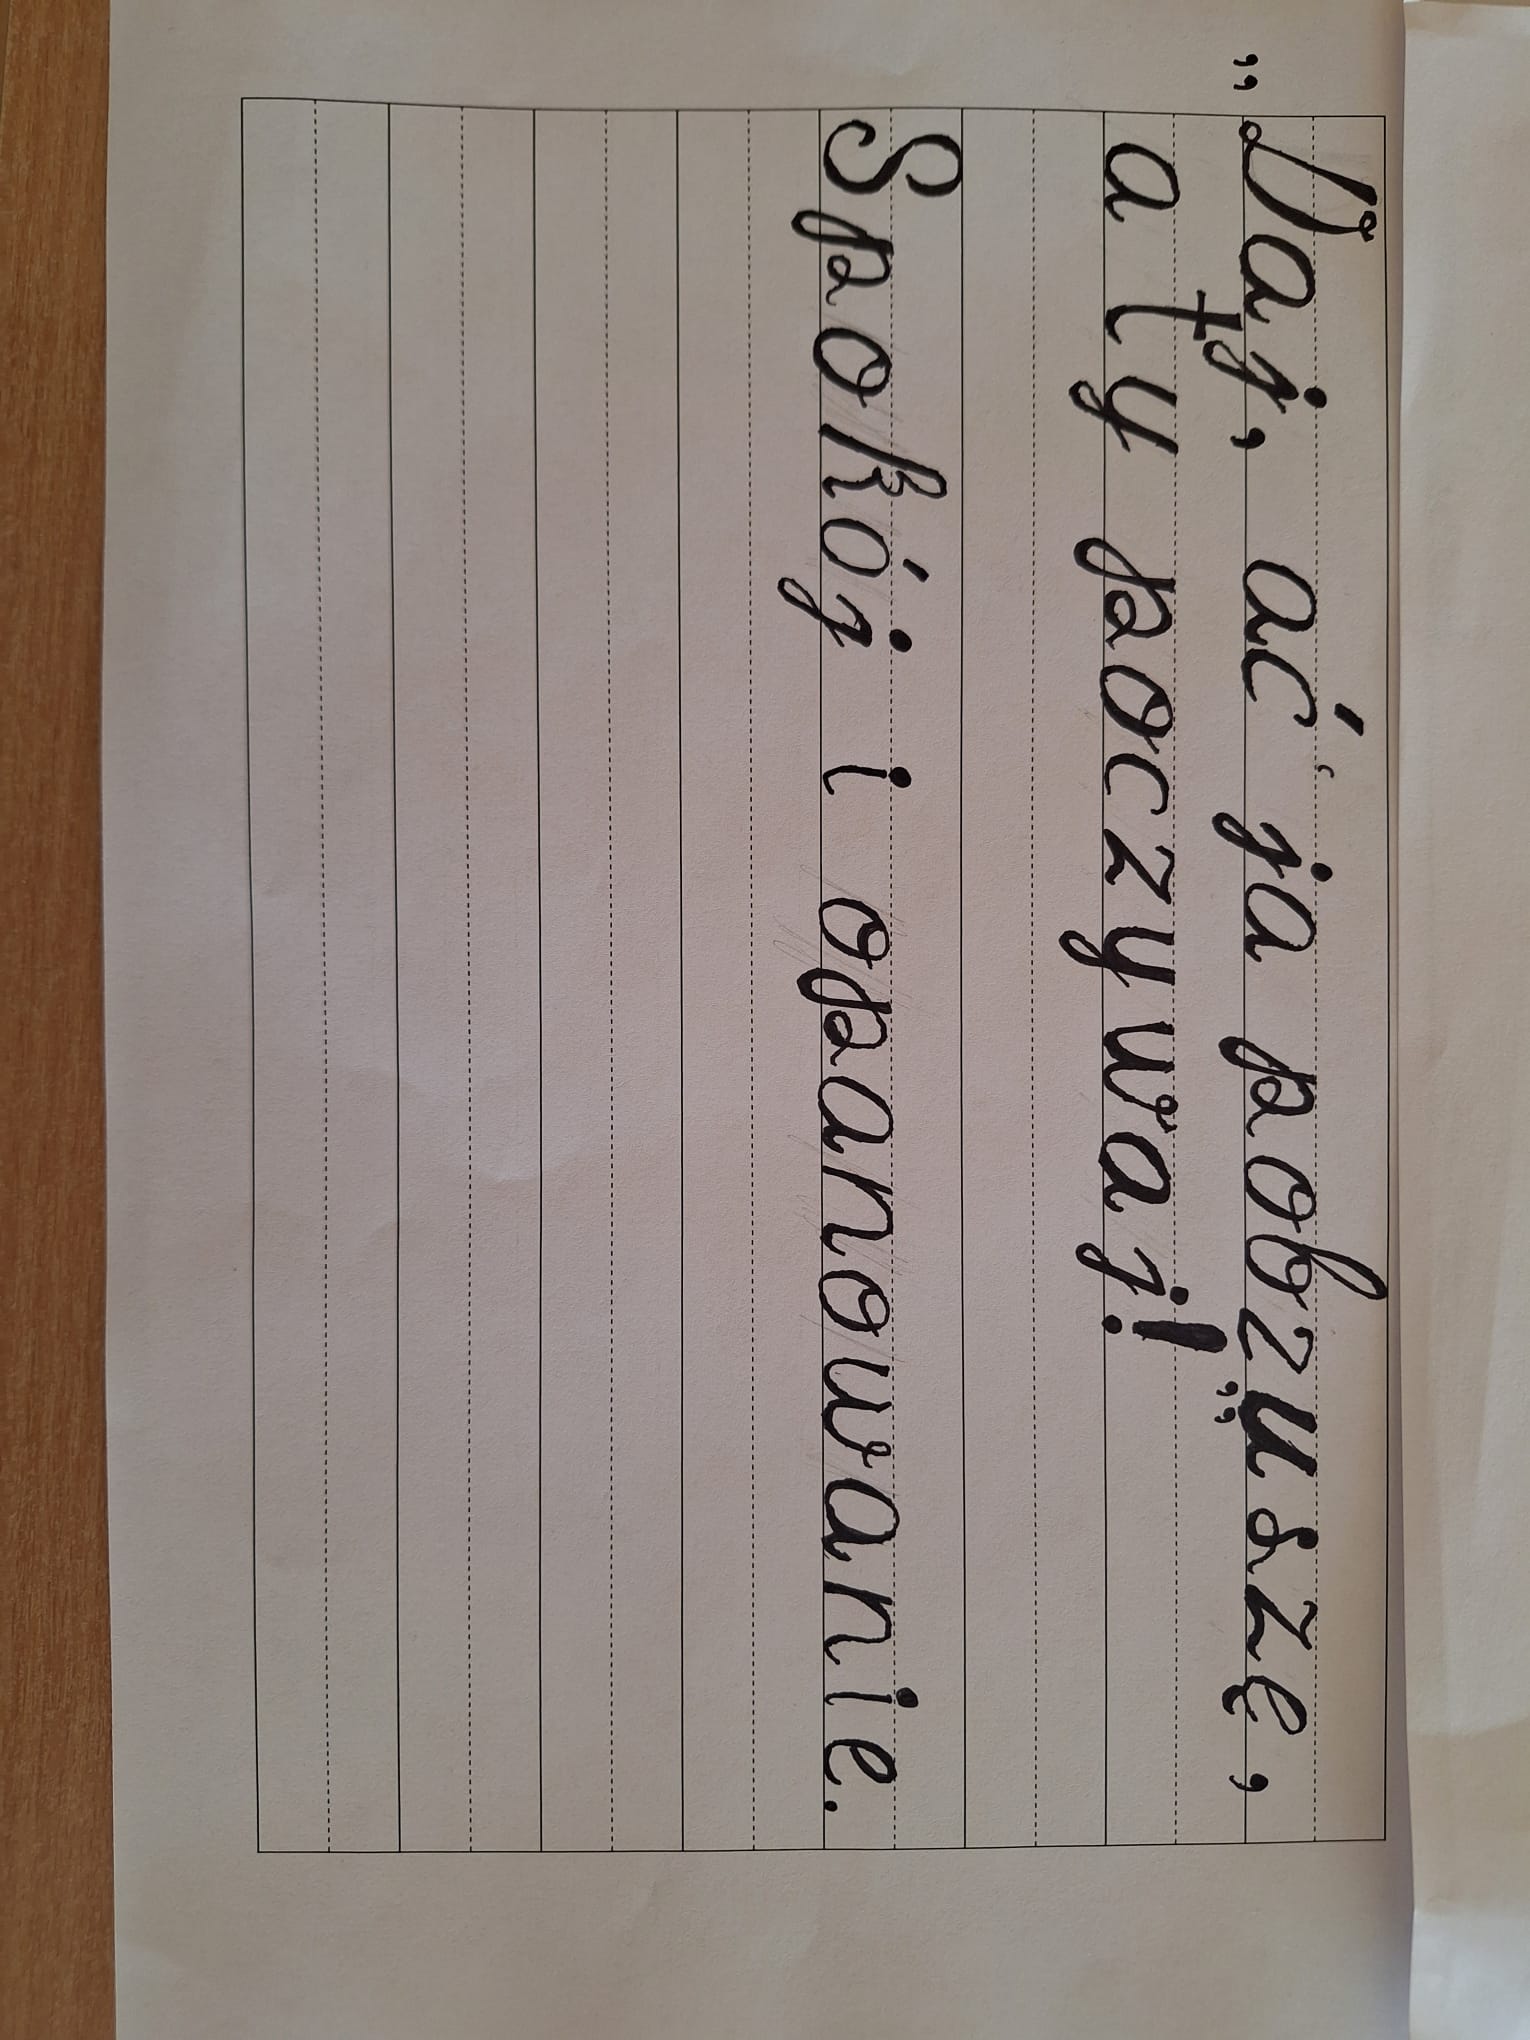 „Daj, ać ja pobzuszę,
a ty poczywaj!”
Spokój i opanowanie.